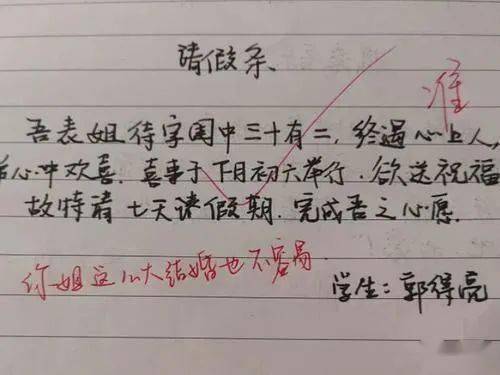 请假条
准
吾表姐待字闺中三十有二，终遇心上人，
心中欢喜．喜事于下月初六举行．欲送祝福
故特请七天课假期．完成吾之心愿．
你姐这么大结婚也不容易
学生：郭得亮